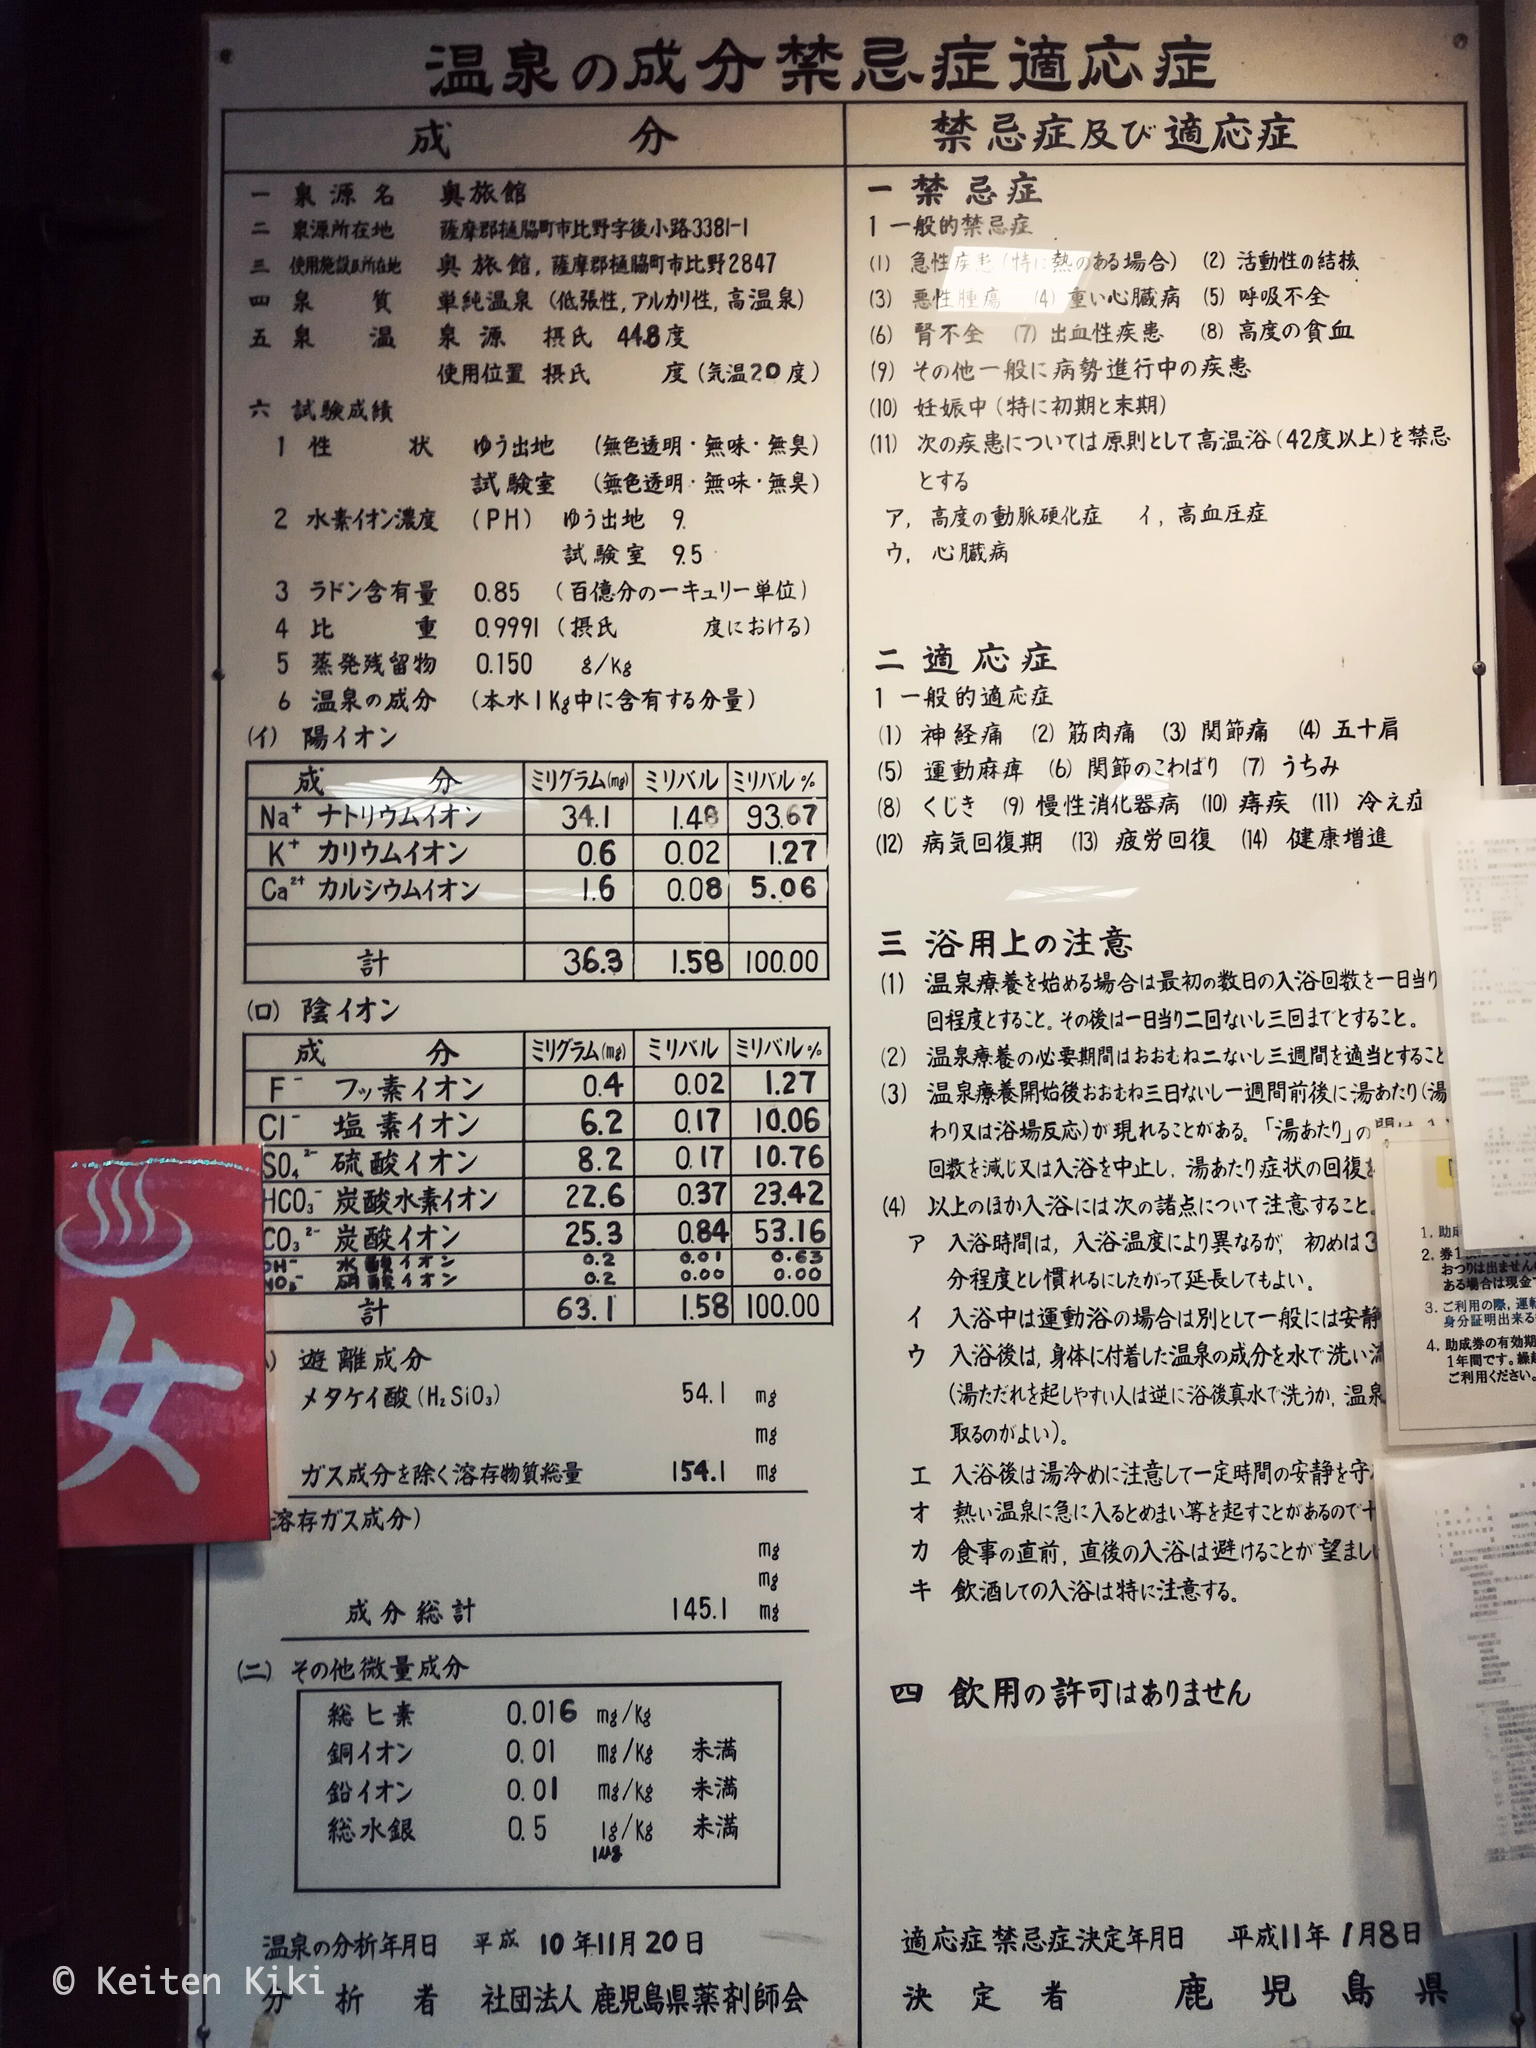 温泉の成分禁忌症適応症
成分
一 泉源名 奥旅館
二 泉源所在地 薩摩郡樋脇町市比野字後小路3381-1
三 使用施設及所在地 奥旅館, 薩摩郡樋脇町市比野2847
四 泉質 単純温泉 (低張性, アルカリ性, 高温泉)
五 泉温 泉源 摂氏 44.8度
使用位置 摂氏 度 (気温20度)
六 試験成績
1 性状 ゆう出地 (無色透明・無味・無臭)
試験室 (無色透明・無味・無臭)
2 水素イオン濃度 (PH) ゆう出地 9.
試験室 9.5
3 ラドン含有量 0.85 (百億分の一キュリー単位)
4 比重 0.9991 (摂氏 度における)
5 蒸発残留物 0.150 g/Kg
6 温泉の成分 (本水1Kg中に含有する分量)
(イ) 陽イオン
成分 ミリグラム(mg) ミリバル ミリバル%
Na⁺ ナトリウムイオン 34.1 1.48 93.67
K⁺ カリウムイオン 0.6 0.02 1.27
Ca²⁺ カルシウムイオン 1.6 0.08 5.06
計 36.3 1.58 100.00
(ロ) 陰イオン
成分 ミリグラム(mg) ミリバル ミリバル%
F⁻ フッ素イオン 0.4 0.02 1.27
Cl⁻ 塩素イオン 6.2 0.17 10.06
SO₄²⁻ 硫酸イオン 8.2 0.17 10.76
HCO₃⁻ 炭酸水素イオン 22.6 0.37 23.42
CO₃²⁻ 炭酸イオン 25.3 0.84 53.16
OH⁻ 水酸イオン 0.2 0.01 0.63
NO₃⁻ 硝酸イオン 0.2 0.00 0.00
計 63.1 1.58 100.00
) 遊離成分
メタケイ酸 (H₂SiO₃) 54.1 mg
mg
ガス成分を除く溶存物質総量 154.1 mg
溶存ガス成分)
mg
mg
成分総計 145.1 mg
(ニ) その他微量成分
総ヒ素 0.016 mg/Kg
銅イオン 0.01 mg/Kg 未満
鉛イオン 0.01 mg/Kg 未満
総水銀 0.5 1g/Kg 未満
1μg
温泉の分析年月日 平成 10年11月20日
分析者 社団法人 鹿児島県薬剤師会
禁忌症及び適応症
一 禁忌症
1 一般的禁忌症
(1) 急性疾患 (特に熱のある場合) (2) 活動性の結核
(3) 悪性腫瘍 (4) 重い心臓病 (5) 呼吸不全
(6) 腎不全 (7) 出血性疾患 (8) 高度の貧血
(9) その他一般に病勢進行中の疾患
(10) 妊娠中 (特に初期と末期)
(11) 次の疾患については原則として高温浴 (42度以上)を禁忌
とする
ア, 高度の動脈硬化症 イ, 高血圧症
ウ, 心臓病
二 適応症
1 一般的適応症
(1) 神経痛 (2) 筋肉痛 (3) 関節痛 (4) 五十肩
(5) 運動麻痺 (6) 関節のこわばり (7) うちみ
(8) くじき (9) 慢性消化器病 (10) 痔疾 (11) 冷え症
(12) 病気回復期 (13) 疲労回復 (14) 健康増進
三 浴用上の注意
(1) 温泉療養を始める場合は最初の数日の入浴回数を一日当り
回程度とすること。その後は一日当り二回ないし三回までとすること。
(2) 温泉療養の必要期間はおおむね二ないし三週間を適当とすること
(3) 温泉療養開始後おおむね三日ないし一週間前後に湯あたり(湯
わり又は浴場反応)が現れることがある。「湯あたり」の間は
回数を減じ又は入浴を中止し, 湯あたり症状の回復を
(4) 以上のほか入浴には次の諸点について注意すること。
ア 入浴時間は, 入浴温度により異なるが, 初めは3
分程度とし慣れるにしたがって延長してもよい。
イ 入浴中は運動浴の場合は別として一般には安静
ウ 入浴後は, 身体に付着した温泉の成分を水で洗い流
(湯ただれを起しやすい人は逆に浴後真水で洗うか, 温泉
取るのがよい)。
エ 入浴後は湯冷めに注意して一定時間の安静を守
オ 熱い温泉に急に入るとめまい等を起すことがあるので十
カ 食事の直前, 直後の入浴は避けることが望まし
キ 飲酒しての入浴は特に注意する。
四 飲用の許可はありません
適応症禁忌症決定年月日 平成11年1月8日
決定者 鹿児島県
女
1. 助成
2. 券1
おつりは出ません
ある場合は現金
3. ご利用の際, 運転
身分証明出来る
4. 助成券の有効期
1年間です。
ご利用ください。
© Keiten Kiki